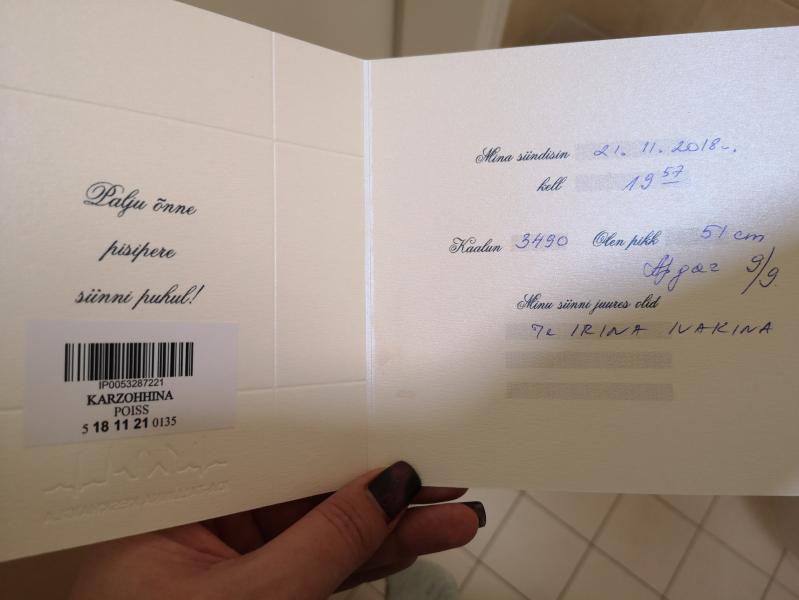 Palju õnne
pisipere
sünni puhul!
IP0053287221
KARZOHHINA
POISS
5 18 11 21 0135
Mina sündisin 21. 11. 2018.
kell 19 57
Kaalun 3490 Olen pikk 51 cm
Apgar 9/9
Minu sünni juures olid
IRINA IVAKINA